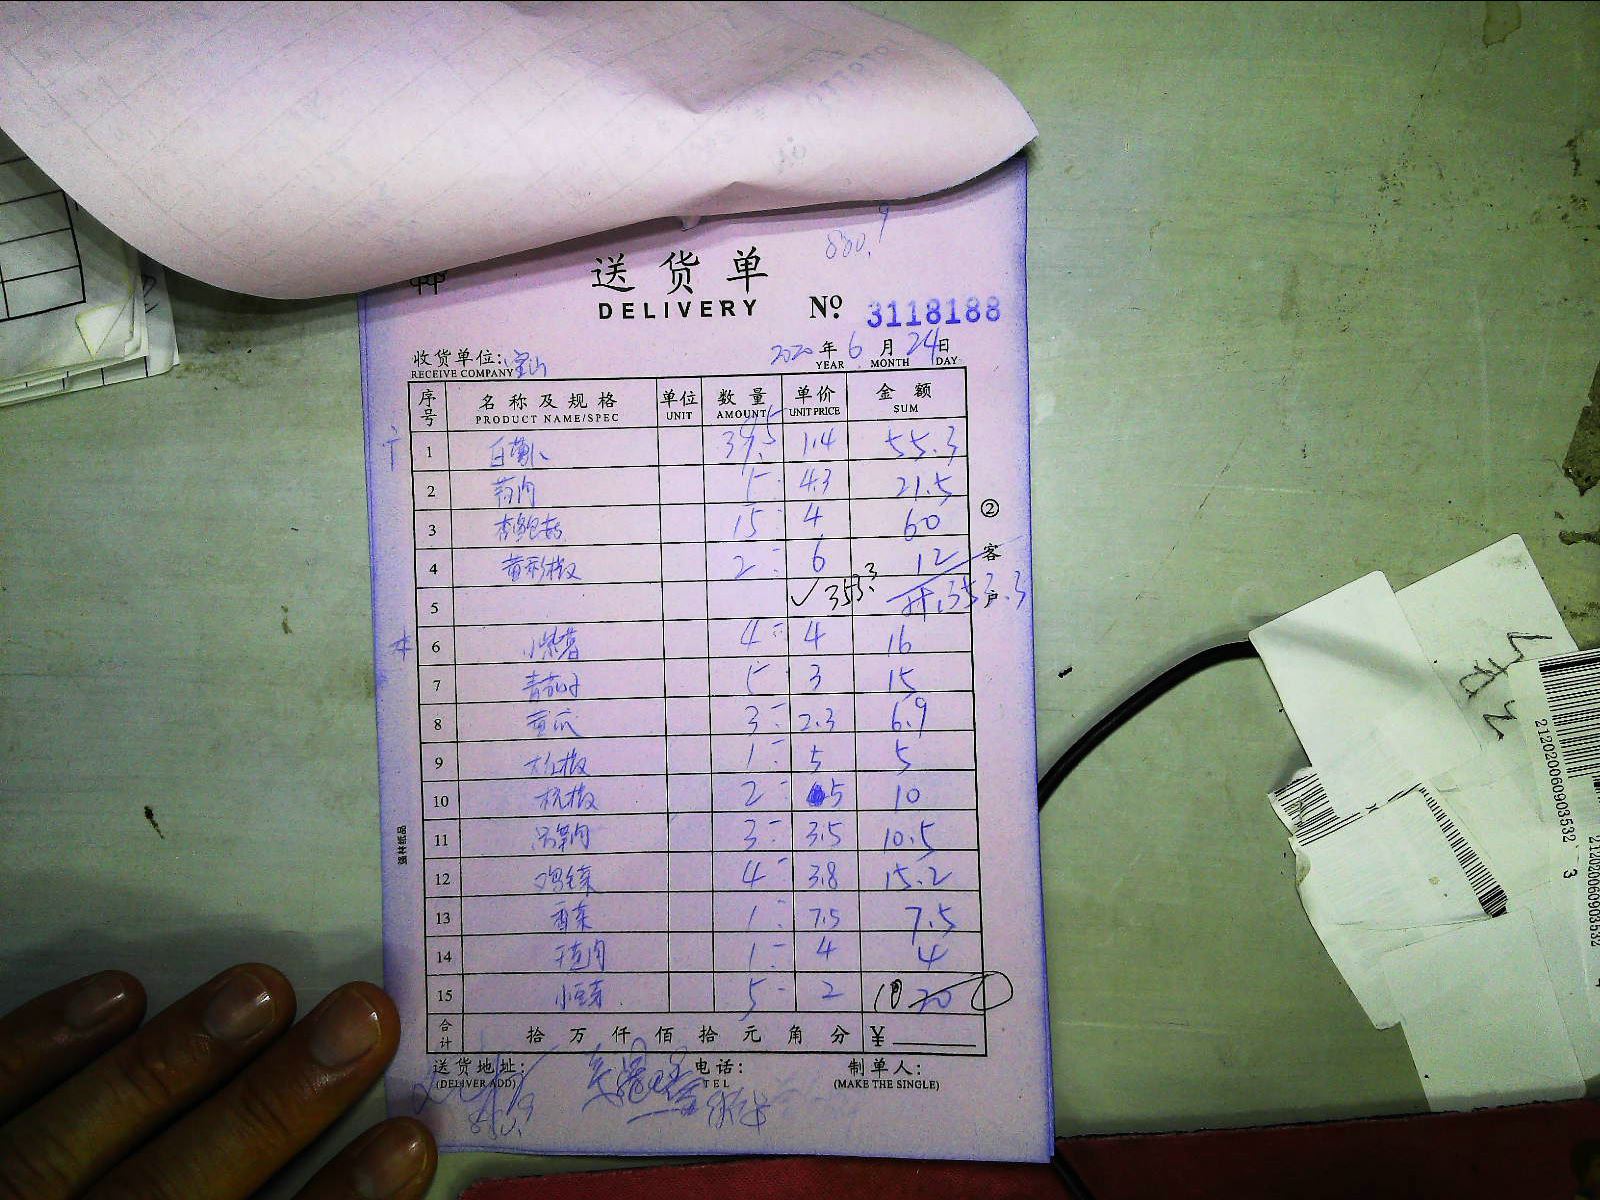 880.9
送货单
DELIVERY № 3118188
收货单位: 宝山 2020 年 6 月 24 日
RECEIVE COMPANY YEAR MONTH DAY
序号 名称及规格 单位 数量 单价 金额
PRODUCT NAME/SPEC UNIT AMOUNT UNIT PRICE SUM
1 39.5 1.4 55.3
2 5 4.3 21.5
3 杏鲍菇 15 4 60
4 黄彩椒 2 6 12
5 353.3 353.3
6 小紫薯 4 4 16
7 青茄子 5 3 15
8 黄瓜 3 2.3 6.9
9 大红椒 1 5 5
10 杭椒 2 5 10
11 3 3.5 10.5
12 4 3.8 15.2
13 香菜 1 7.5 7.5
14 1 4 4
15 小豆芽 5 2 10 20
合计 拾 万 仟 佰 拾 元 角 分 ¥
送货地址: 电话: 制单人:
(DELIVER ADD) TEL (MAKE THE SINGLE)
② 客户
强林纸品
212020060903532 3
212020060903532